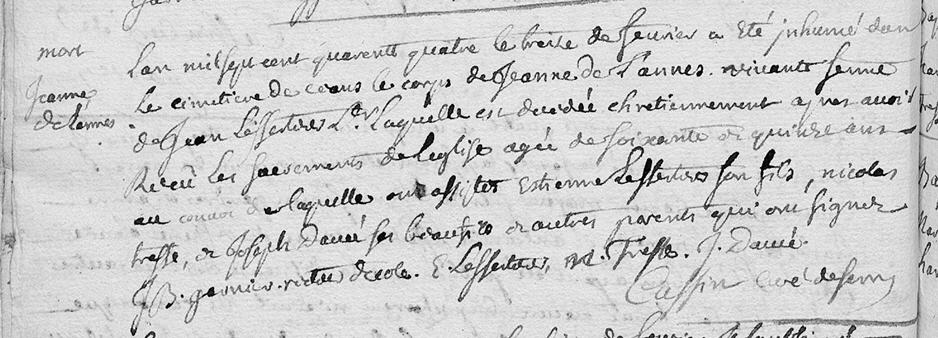 mort
Jeanne
de Lannes
L'an mil sept cent quarente quatre le treize de feuvrier a eté jnhumé dan
Le cimetiere de ceans le corps de Jeanne de Lannes. vivante femme
de Jean Lesserteur Lab. Laquelle est decedée chretiennement apres avoir
Receu Les sacrements de leglise agée de soixante et quinze ans
au convoi de laquelle ont assistes Estienne Lesserteur son fils, nicolas
tresse, et Joseph Daué ses beaufils et autres parents qui ont signer
J B. garnier. recteur decole. E. Lesserteur, N. Tresse. J. Daué.
Cassin curé de